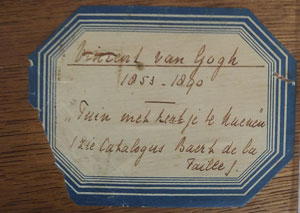 Vincent van Gogh
1853-1890
"Tuin met kerkje te Nuenen"
(zie Catalogus Baert de la
Faille).